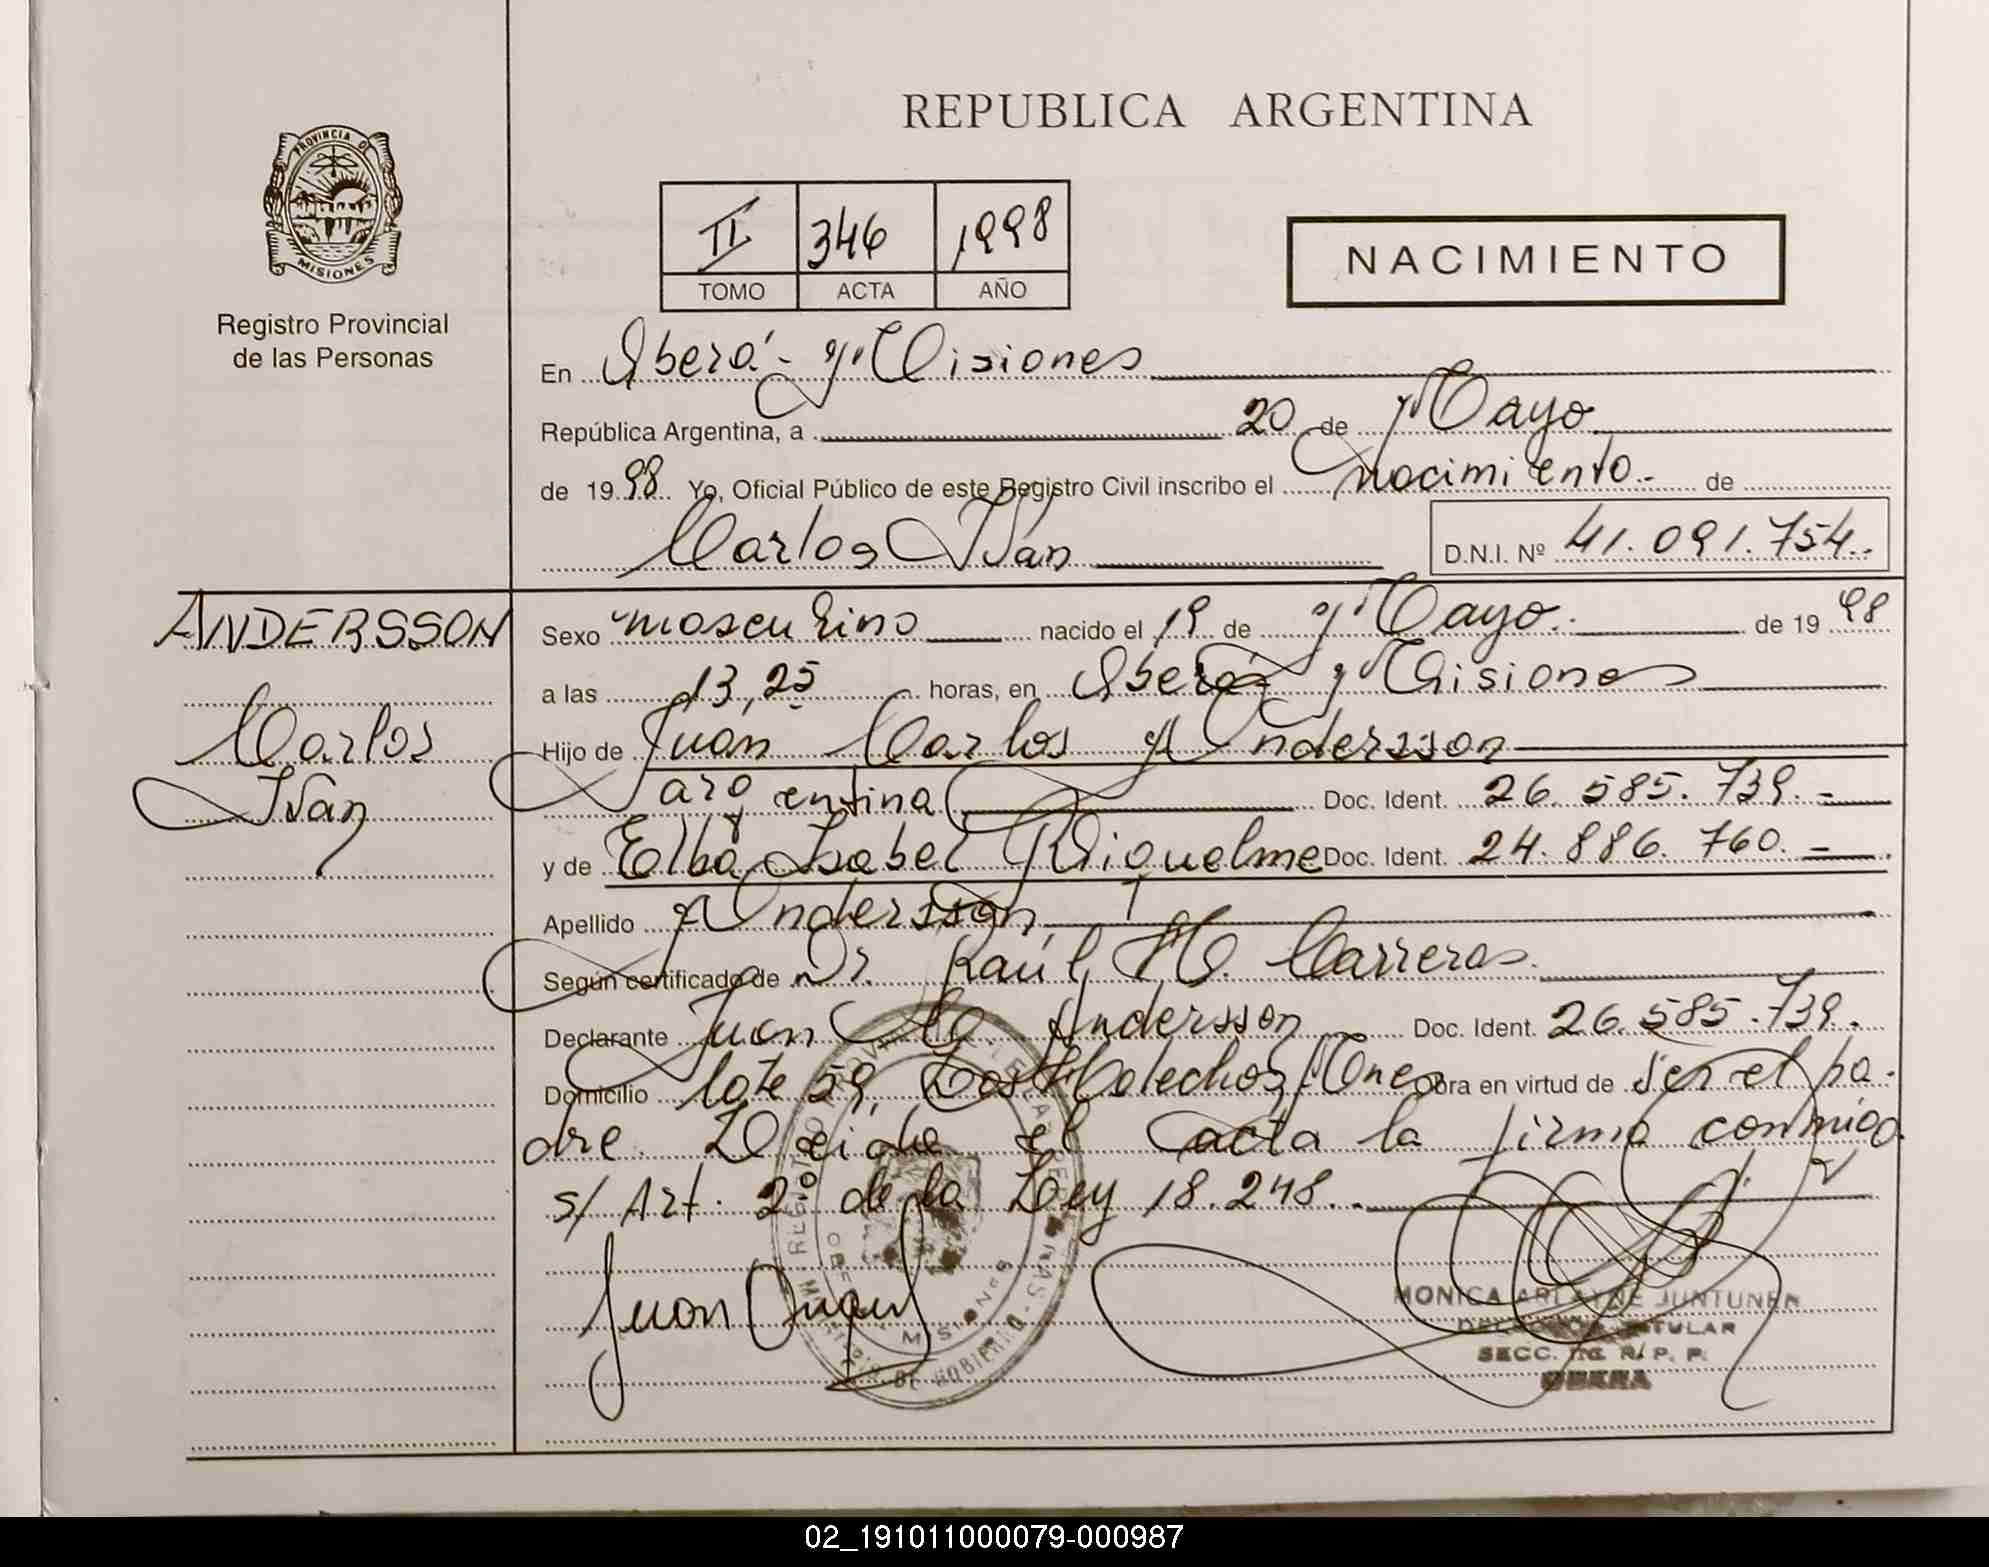 REPUBLICA ARGENTINA
PROVINCIA DE
MISIONES
Registro Provincial
de las Personas
II 346 1998
TOMO ACTA AÑO
NACIMIENTO
En Oberá - Misiones
República Argentina, a 20 de Mayo
de 1998 Yo, Oficial Público de este Registro Civil inscribo el nacimiento.- de
Carlos Iván D.N.I. Nº 41.091.754.
ANDERSSON
Carlos
Iván
Sexo masculino nacido el 19 de Mayo. de 1998
a las 13,25 horas, en Oberá Misiones
Hijo de Juan Carlos Andersson
argentina Doc. Ident. 26.585.739.-
y de Elba Isabel Riquelme Doc. Ident. 24.886.760.-
Apellido Andersson,
Según certificado de Dr. Raúl H. Carreras.
Declarante Juan C. Andersson Doc. Ident. 26.585.739.
Domicilio lote 59, Los Helechos, Mnes Obra en virtud de ser el pa-
dre. Leída el acta la firma conmigo
s/ Art. 2 de la Ley 18.248.-
Juan
MONICA ARLAYNE JUNTUNEN
DELEGADA TITULAR
SECC. R. P. P.
OBERA
02_191011000079-000987